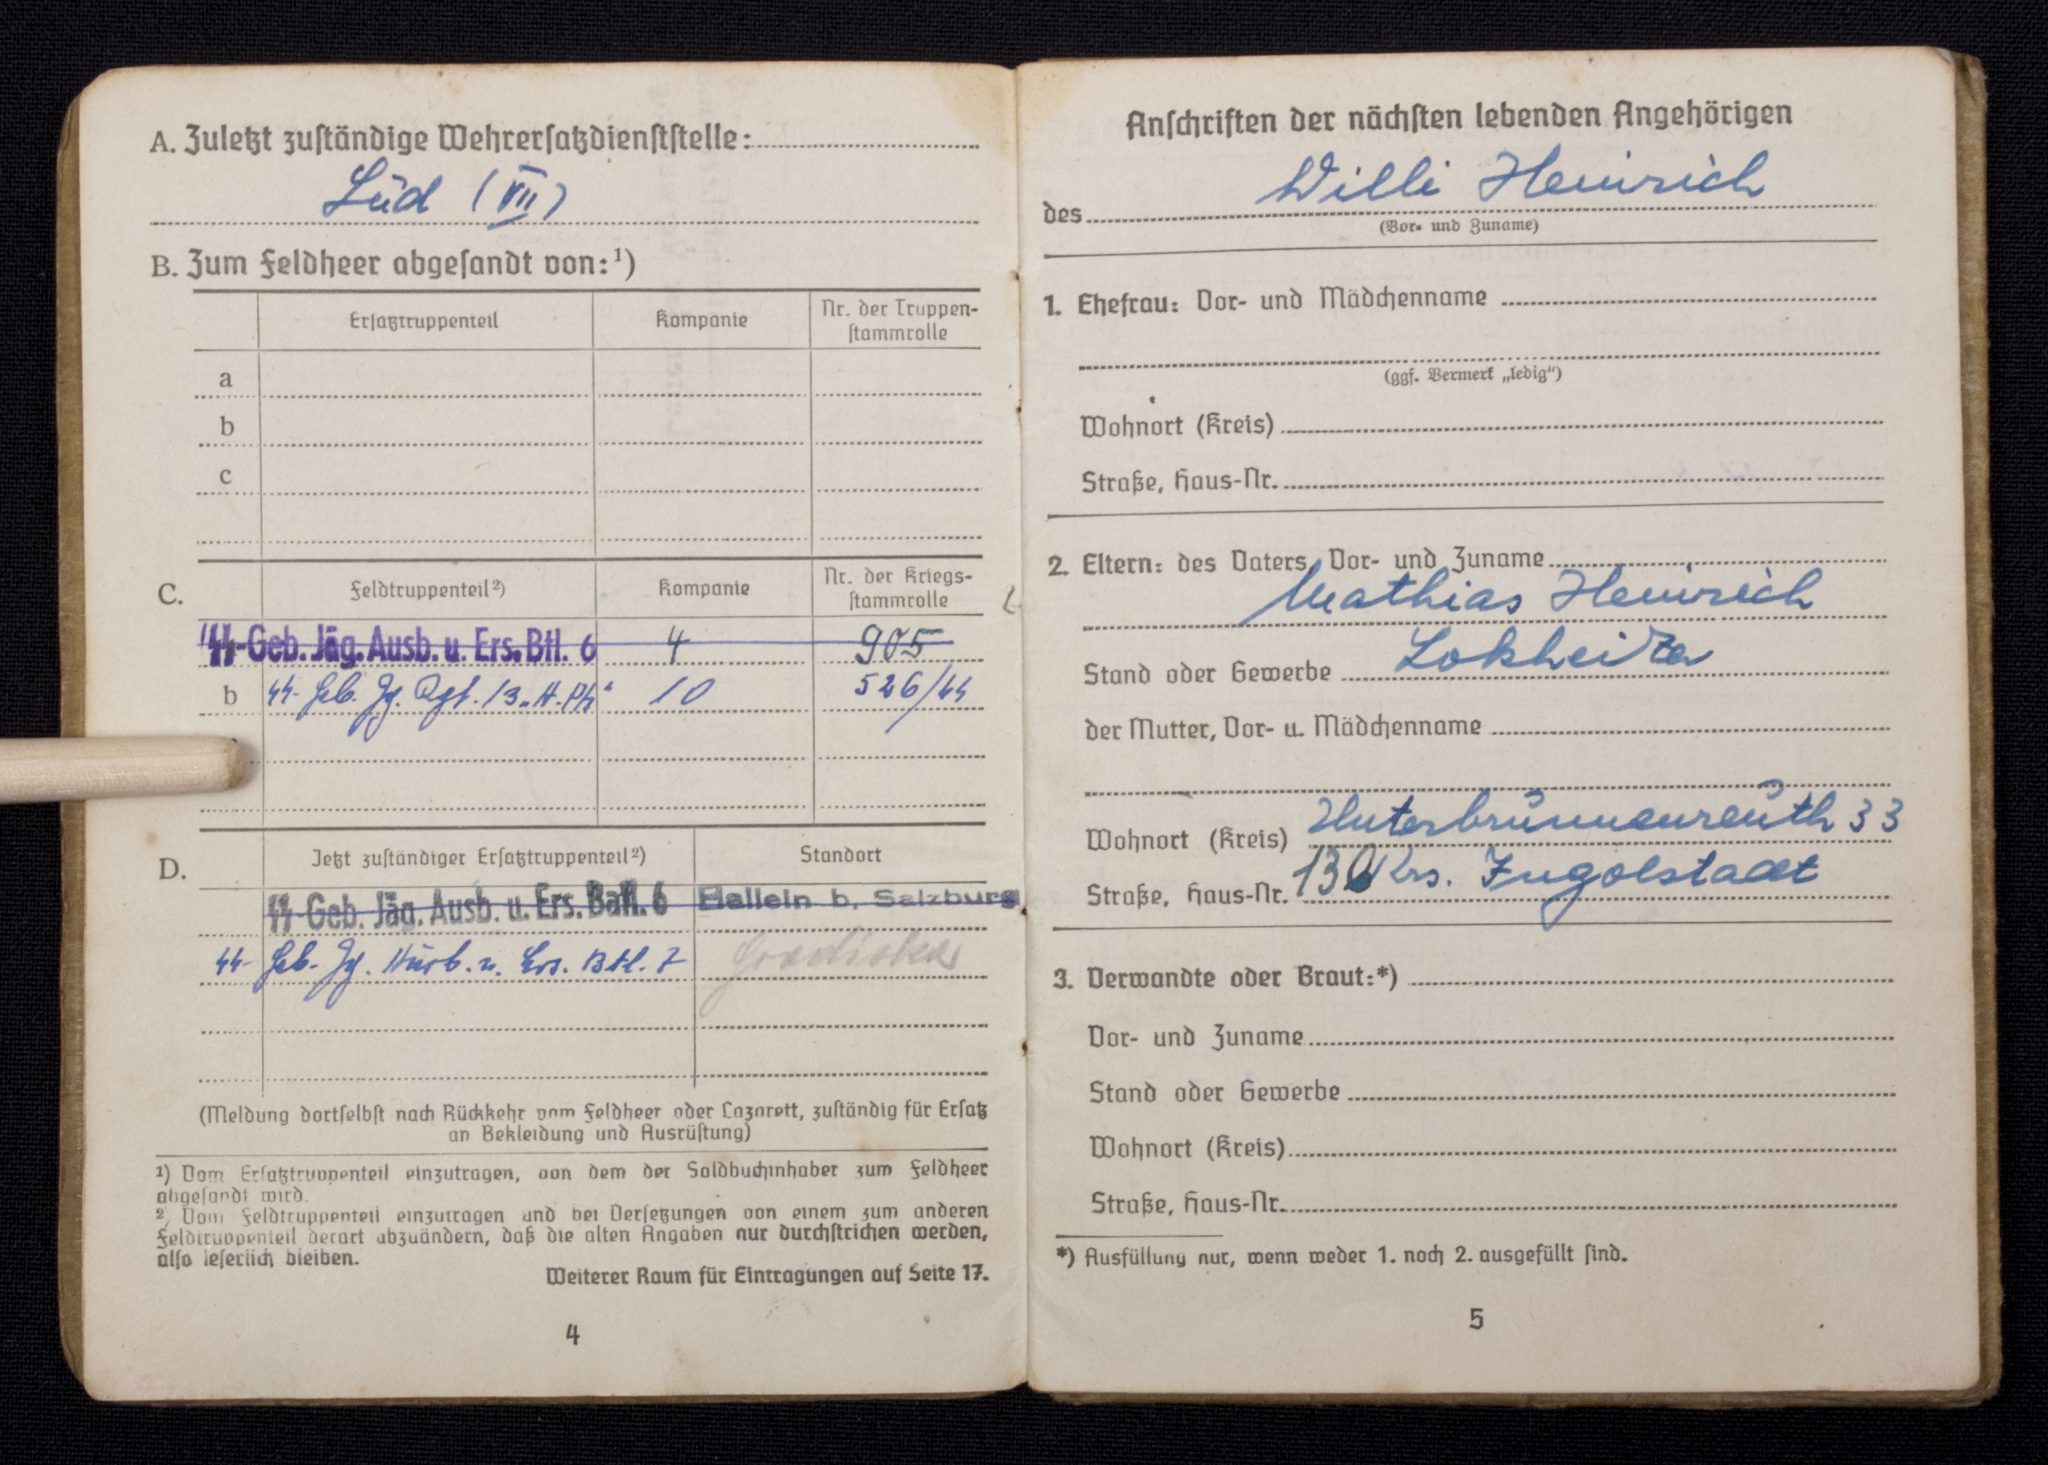 A. Zuletzt zuständige Wehrersatzdienststelle:
Süd (VII)
B. Zum Feldheer abgesandt von:¹)
Ersatztruppenteil Kompanie Nr. der Truppen-
stammrolle
a
b
c
C. Feldtruppenteil²) Kompanie Nr. der Kriegs-
stammrolle
ᛋᛋ-Geb. Jäg. Ausb. u. Ers. Btl. 6 4 905
b ᛋᛋ- Geb. Jg. Rgt. 13 „A. Ph“ 10 526/44
D. Jetzt zuständiger Ersatztruppenteil²) Standort
ᛋᛋ-Geb. Jäg. Ausb. u. Ers. Batl. 6 Hallein b. Salzburg
ᛋᛋ- Geb. Jg. Ausb. u. Ers. Btl. 7 Gradiska
(Meldung dortselbst nach Rückkehr vom Feldheer oder Lazarett, zuständig für Ersatz
an Bekleidung und Ausrüstung)
¹) Vom Ersatztruppenteil einzutragen, von dem der Soldbuchinhaber zum Feldheer
abgesandt wird.
²) Vom Feldtruppenteil einzutragen und bei Versetzungen von einem zum anderen
Feldtruppenteil derart abzuändern, daß die alten Angaben nur durchstrichen werden,
also leserlich bleiben.
Weiterer Raum für Eintragungen auf Seite 17.
4
Anschriften der nächsten lebenden Angehörigen
des Willi Heinrich
(Vor- und Zuname)
1. Ehefrau: Vor- und Mädchenname
(ggf. Vermerk „ledig“)
Wohnort (Kreis)
Straße, Haus-Nr.
2. Eltern: des Vaters, Vor- und Zuname
Mathias Heinrich
Stand oder Gewerbe Lokheizer
der Mutter, Vor- u. Mädchenname
Wohnort (Kreis) Unterbrunnenreuth 33
Straße, Haus-Nr. Krs. Ingolstadt
3. Verwandte oder Braut:*)
Vor- und Zuname
Stand oder Gewerbe
Wohnort (Kreis)
Straße, Haus-Nr.
*) Ausfüllung nur, wenn weder 1. noch 2. ausgefüllt sind.
5